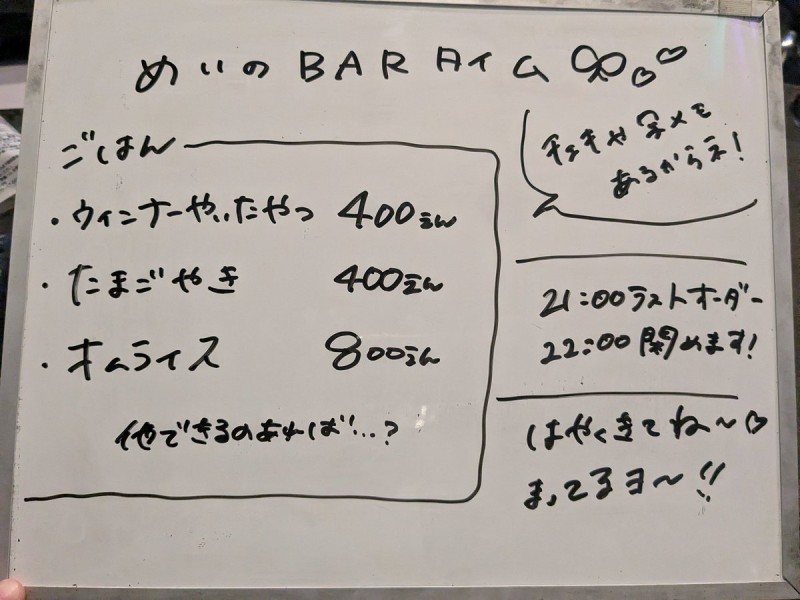 めいのBARタイム
ごはん
・ウィンナーやいたやつ 400えん
・たまごやき 400えん
・オムライス 800えん
他できるのあれば…?
チェキや写メも
あるからえ!
21:00ラストオーダー
22:00閉めます!
はやくきてね〜♡
まってるヨ〜!!